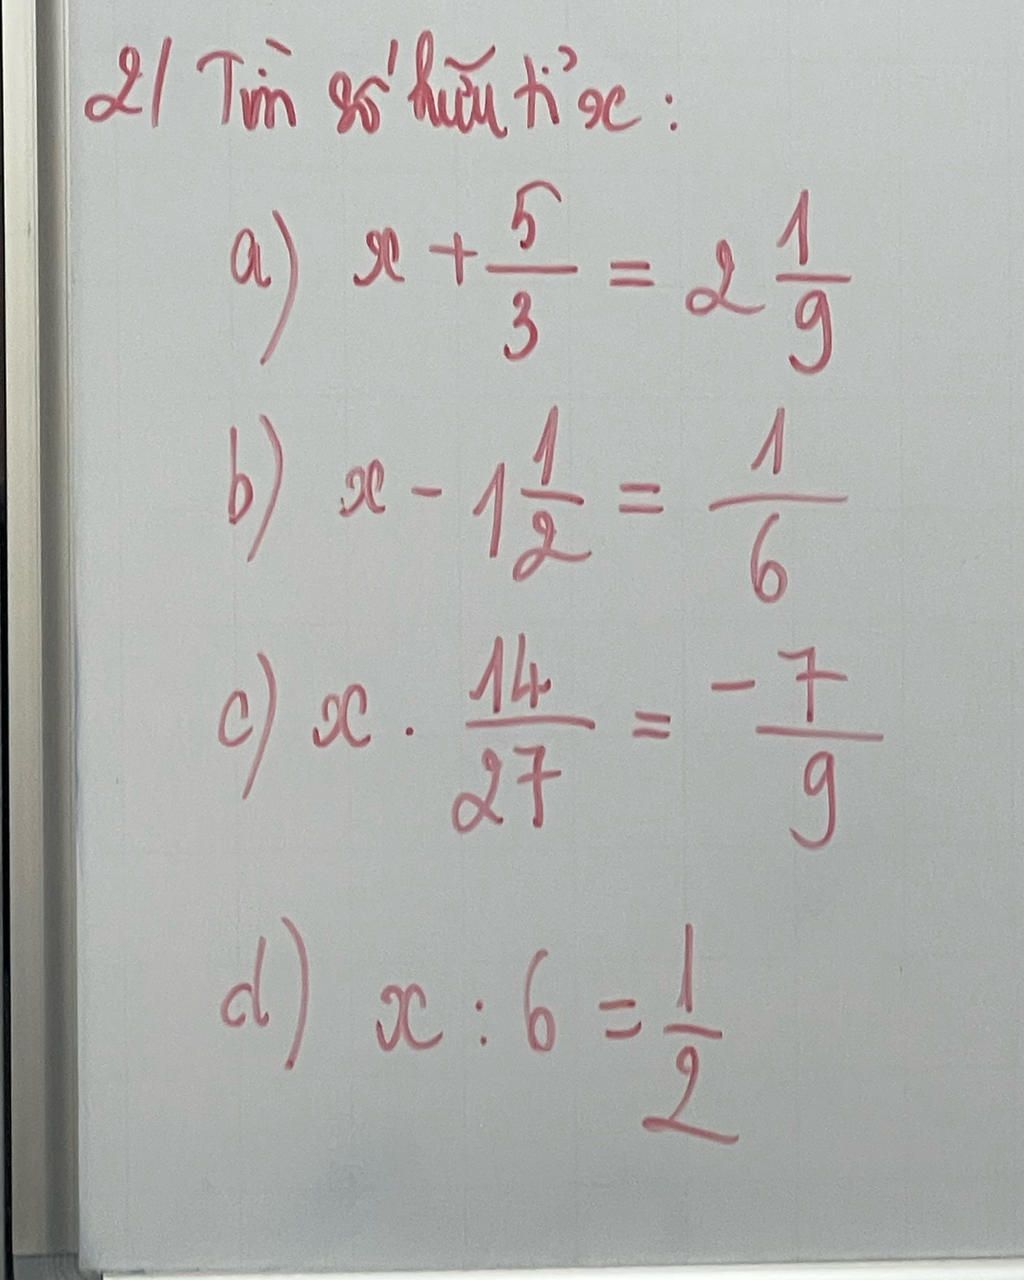 2/ Tìm số hữu tỉ x :
a) x + 5/3 = 2 1/9
b) x - 1 1/2 = 1/6
c) x . 14/27 = -7/9
d) x : 6 = 1/2